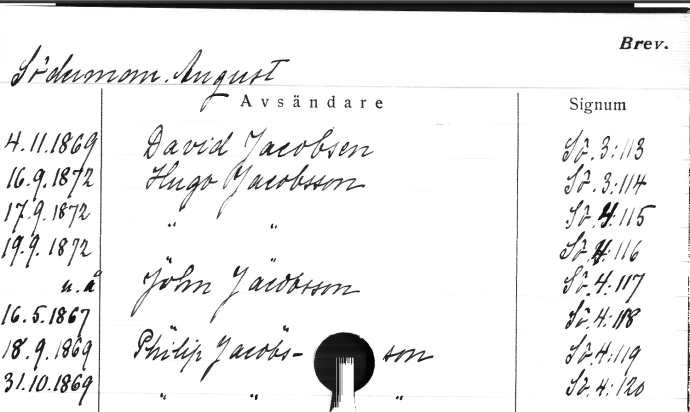 Brev.
Söderman. August
Avsändare Signum
4.11.1869 David Jacobsen Sö. 3:113
16.9.1872 Hugo Jacobsson Sö. 3:114
17.9.1872 " " Sö. 4:115
19.9.1872 Sö. 4:116
u.å John Jacobsson Sö. 4:117
16.5.1867 Sö. 4:118
18.9.1869 Philip Jacobs- son Sö. 4:119
31.10.1869 " " " Sö. 4:120